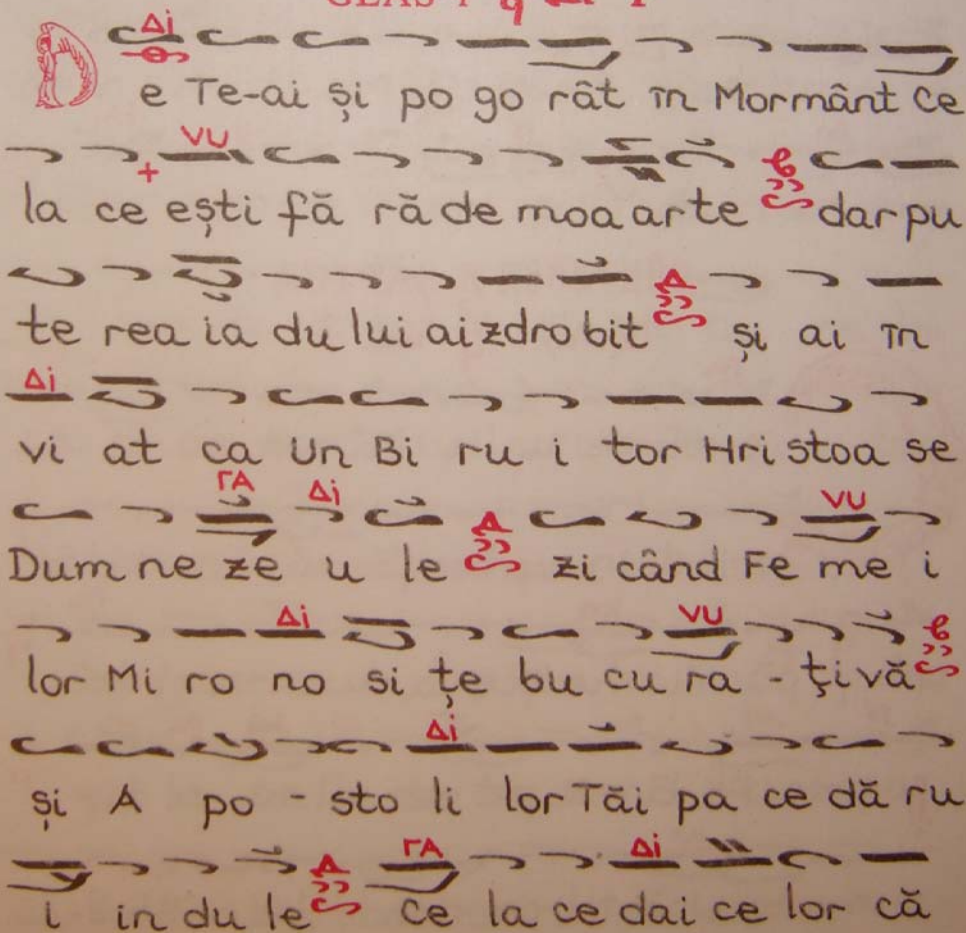 GLAS 1
Δi
De Te-ai și po go rât în Mormânt Ce
VU
la ce ești fă ră de moa ar te dar pu
te rea ia du lui ai zdro bit și ai în
Δi
vi at ca Un Bi ru i tor Hri stoa se
ΓΑ Δi VU
Dum ne ze u le zi când Fe me i
Δi VU
lor Mi ro no si țe bu cu ra - ți vă
Δi
și A po - sto li lor Tăi pa ce dă ru
ΓΑ Δi
i in du le ce la ce dai ce lor că